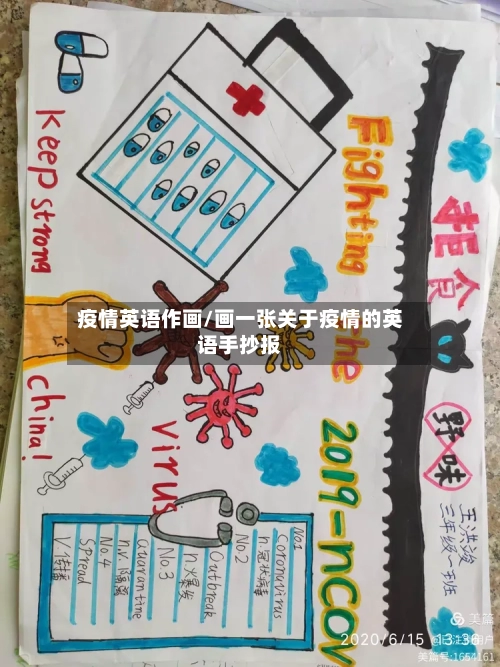 疫情英语作画/画一张关于疫情的英
语手抄报
Keep strong
china!
Fighting
the
2019-nCoV
virus
拒食
野味
王洪浚
三年级一班
No.1
Coronavirus
n 冠状病毒
No.2
Outbreak
n 爆发
No.3
quarantine
n.v 隔离
No.4
Spread
V 传播
2020/6/15 13:36
美篇
美篇号:1654161